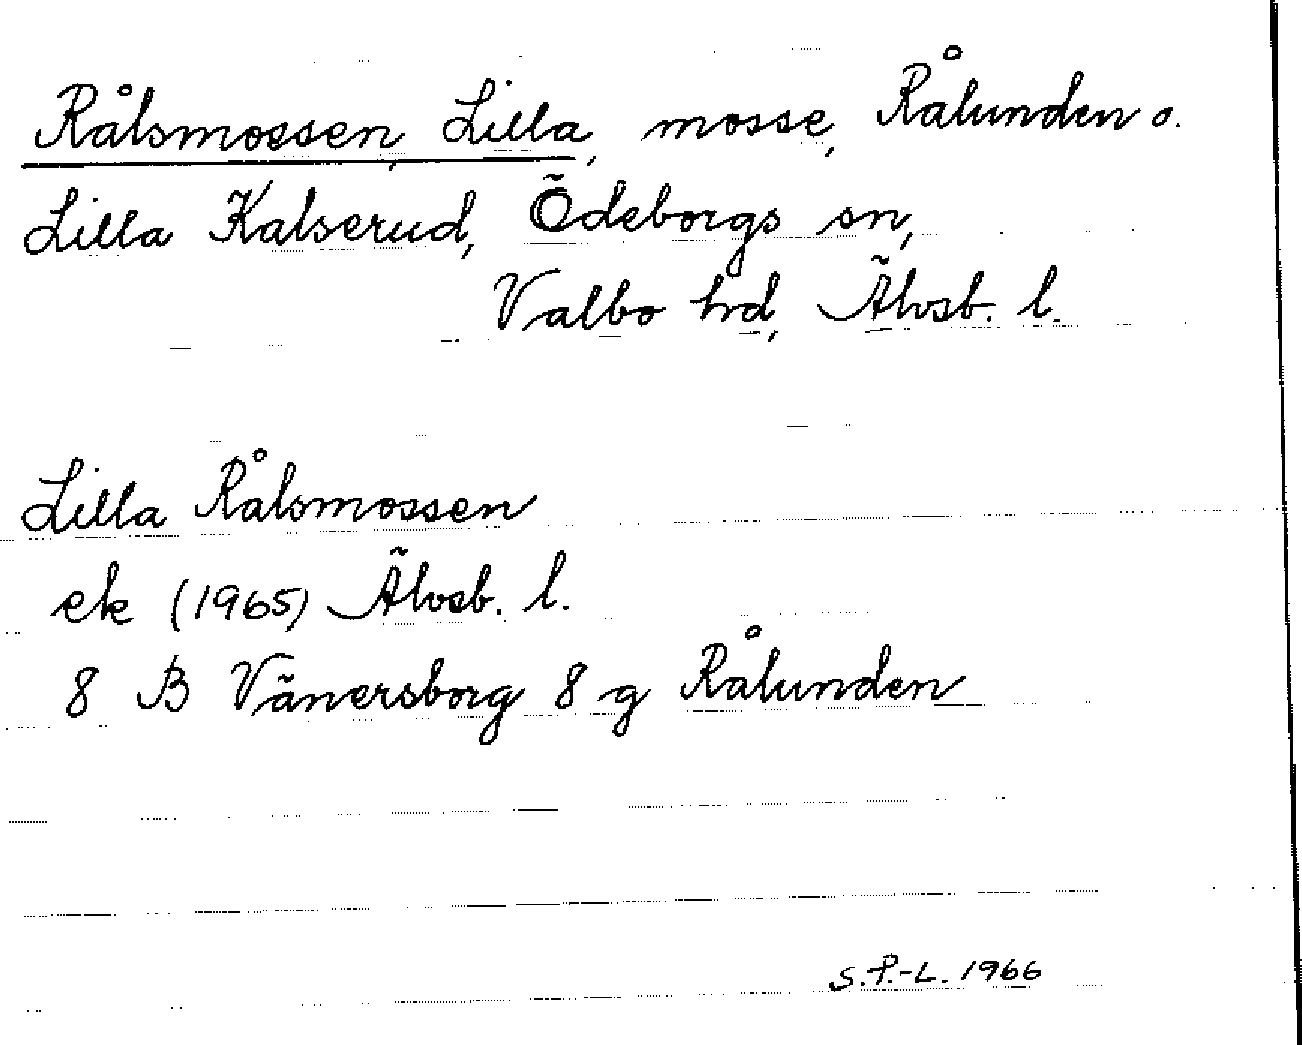 Rålsmossen, Lilla, mosse, Rålunden o.
Lilla Kalserud, Ödeborgs sn,
Valbo hd, Älvsb. l.
Lilla Rålsmossen
ek (1965) Älvsb. l.
8 B Vänersborg 8 g Rålunden
S.P.-L. 1966